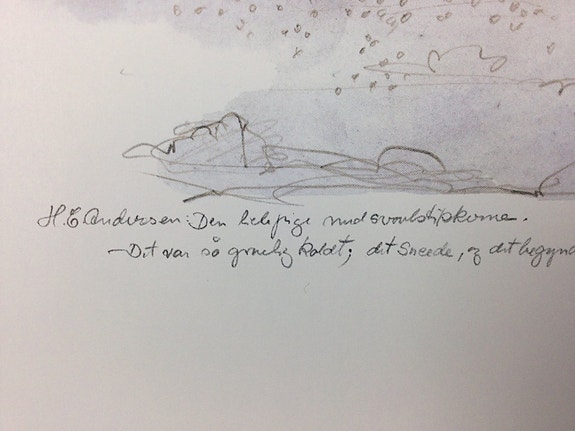 H.C Andersen: Den lille pige med svovlstikkerne.
– Det var så gruelig koldt; det sneede, og det begynd